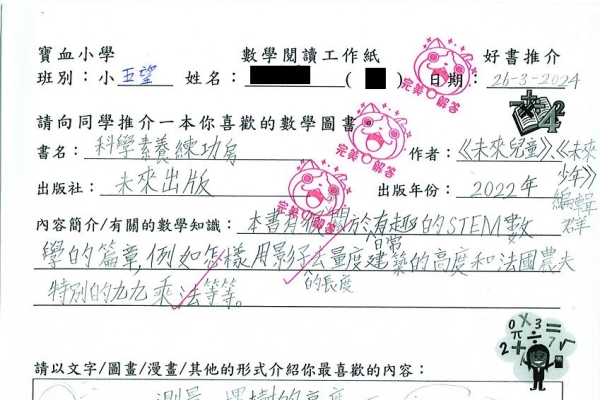 寶血小學 數學閱讀工作紙 好書推介
班別：小 五望 姓名： ( ) 日期：26-3-2024
請向同學推介一本你喜歡的數學圖書
書名：科學素養練功房 作者：《未來兒童》《未來少年》編輯群
出版社：未來出版 出版年份：2022年
內容簡介/有關的數學知識：本書有很 關於有趣的STEM數
學的篇章,例如怎樣用影子去量度日常建築的高度和法國農夫
特別的九九乘法等等。 的長度
完美 解答
完美 解答
完美 解答
請以文字/圖畫/漫畫/其他的形式介紹你最喜歡的內容：
測量一棵樹的高度